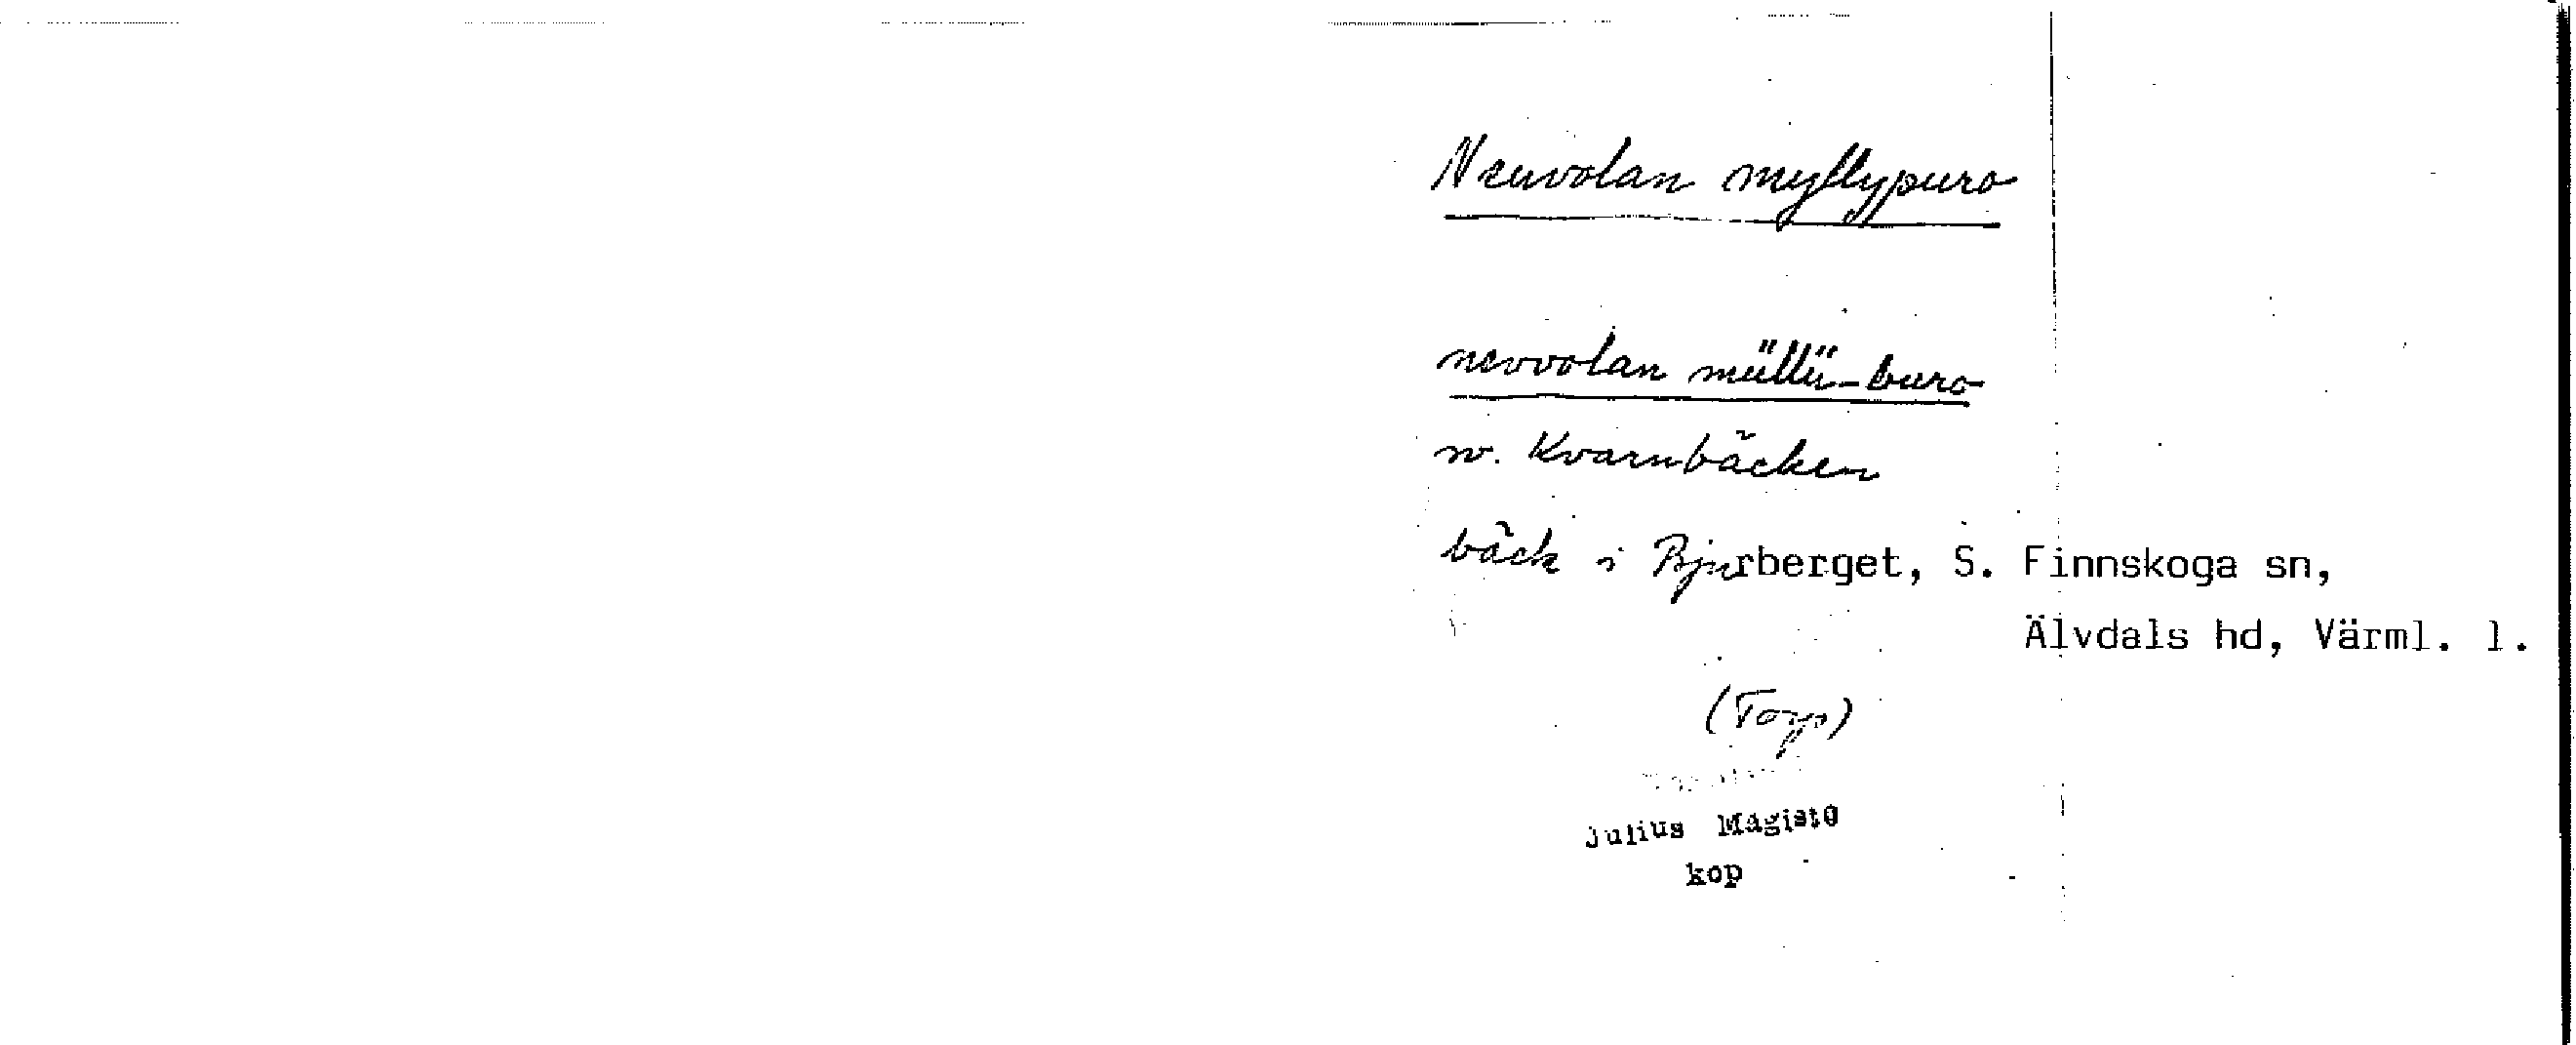 Neuvolan myllypuro
nevvolan müllü-buro
sv. Kvarnbäcken
bäck i Bjurberget, S. Finnskoga sn,
Älvdals hd, Värml. l.
(Torp)
Julius Mägiste
kop